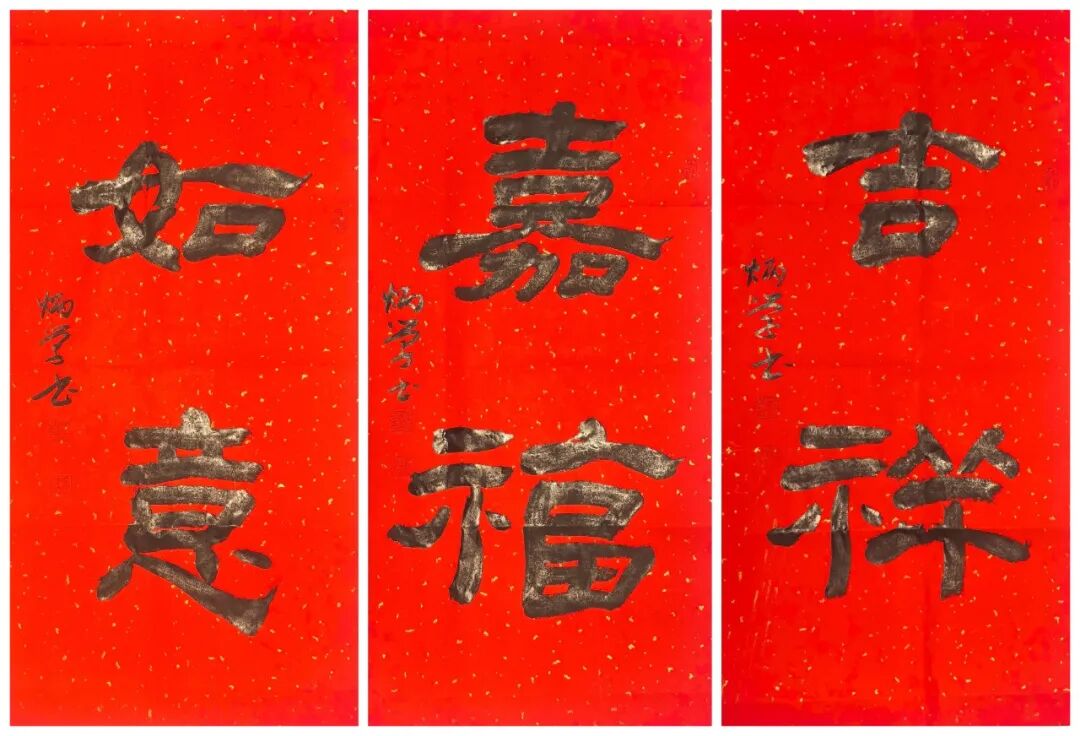 吉祥
炳学书
嘉福
炳学书
如意
炳学书